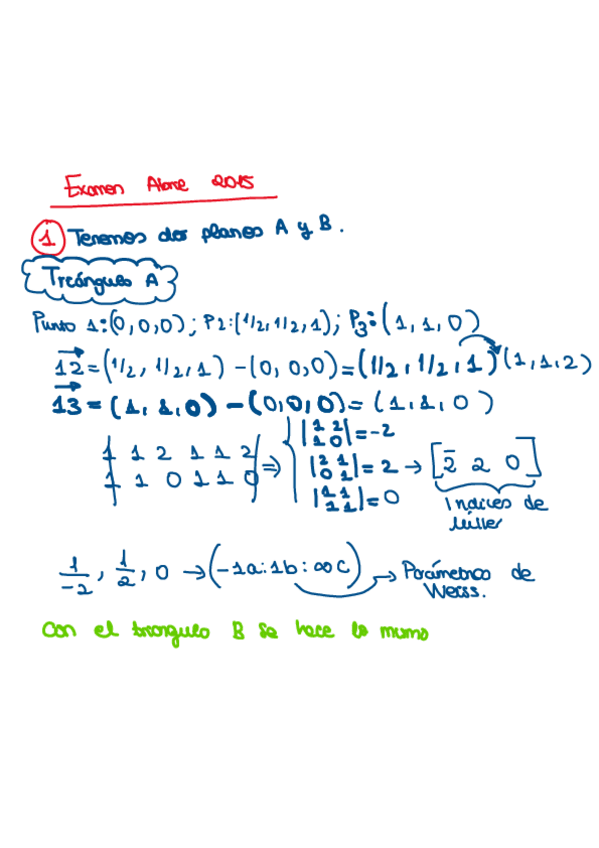 Examen Abre 2015
1 Tenemos dos planos A y B.
Triángulo A
Punto 1:(0,0,0); P2:(1/2,1/2,1); P3:(1,1,0)
12=(1/2, 1/2, 1) -(0, 0,0)=(1/2, 1/2, 1) (1,1,2)
13 = (1,1,0) -(0,0,0)= (1,1,0)
1 1 2 1 1 2
1 1 0 1 1 0
⇒
|1 2|
|1 0|=-2
|2 1|
|0 1|= 2 → [2̄ 2 0]
|1 1|
|1 1|=0
Indices de
Miller
1/-2, 1/2, 0 → (-1a:1b:∞c) → Parámetros de
Weiss.
Con el triangulo B se hace lo mismo